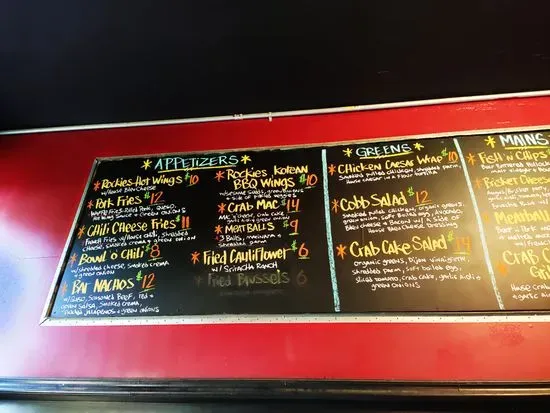 APPETIZERS
Rockies Hot Wings $10
w/House Bleu Cheese
Pork Fries $12
sauce + green onions
Chili Cheese Fries $11
French Fries w/House chili, shredded
cheese, smoked crema + green onion
Bowl o' Chili $8
w/shredded cheese, smoked crema
+ green onion
Bar Nachos $12
w/queso, seasoned beef,
salsa, smoked crema,
pickled jalapeños + green onions
Rockies Korean
BBQ Wings $10
w/sesame seeds, green onions
+ side of
Crab Mac $14
Mac n' cheese, crab cake,
Meatballs $9
3 Balls, marinara +
shredded parm
Fried Cauliflower $6
w/ Sriracha Ranch
Fried Brussels 6
GREENS
Chicken Caesar Wrap $10
smoked pulled chicken, shredded parm,
house caesar in a flour tortilla
Cobb Salad $12
smoked pulled chicken, organic greens,
green onion, soft boiled egg, avocado,
bleu cheese + bacon w/ a side of
House Bleu Cheese Dressing
Crab Cake Salad $14
organic greens, dijon vinaigrette,
shredded parm, soft boiled eggs,
sliced tomatoes, crab cake, garlic aioli +
green onions
MAINS
Fish n' Chips
Beer Battered
Meatball
Crab Ca
House Crab
+ garlic aio